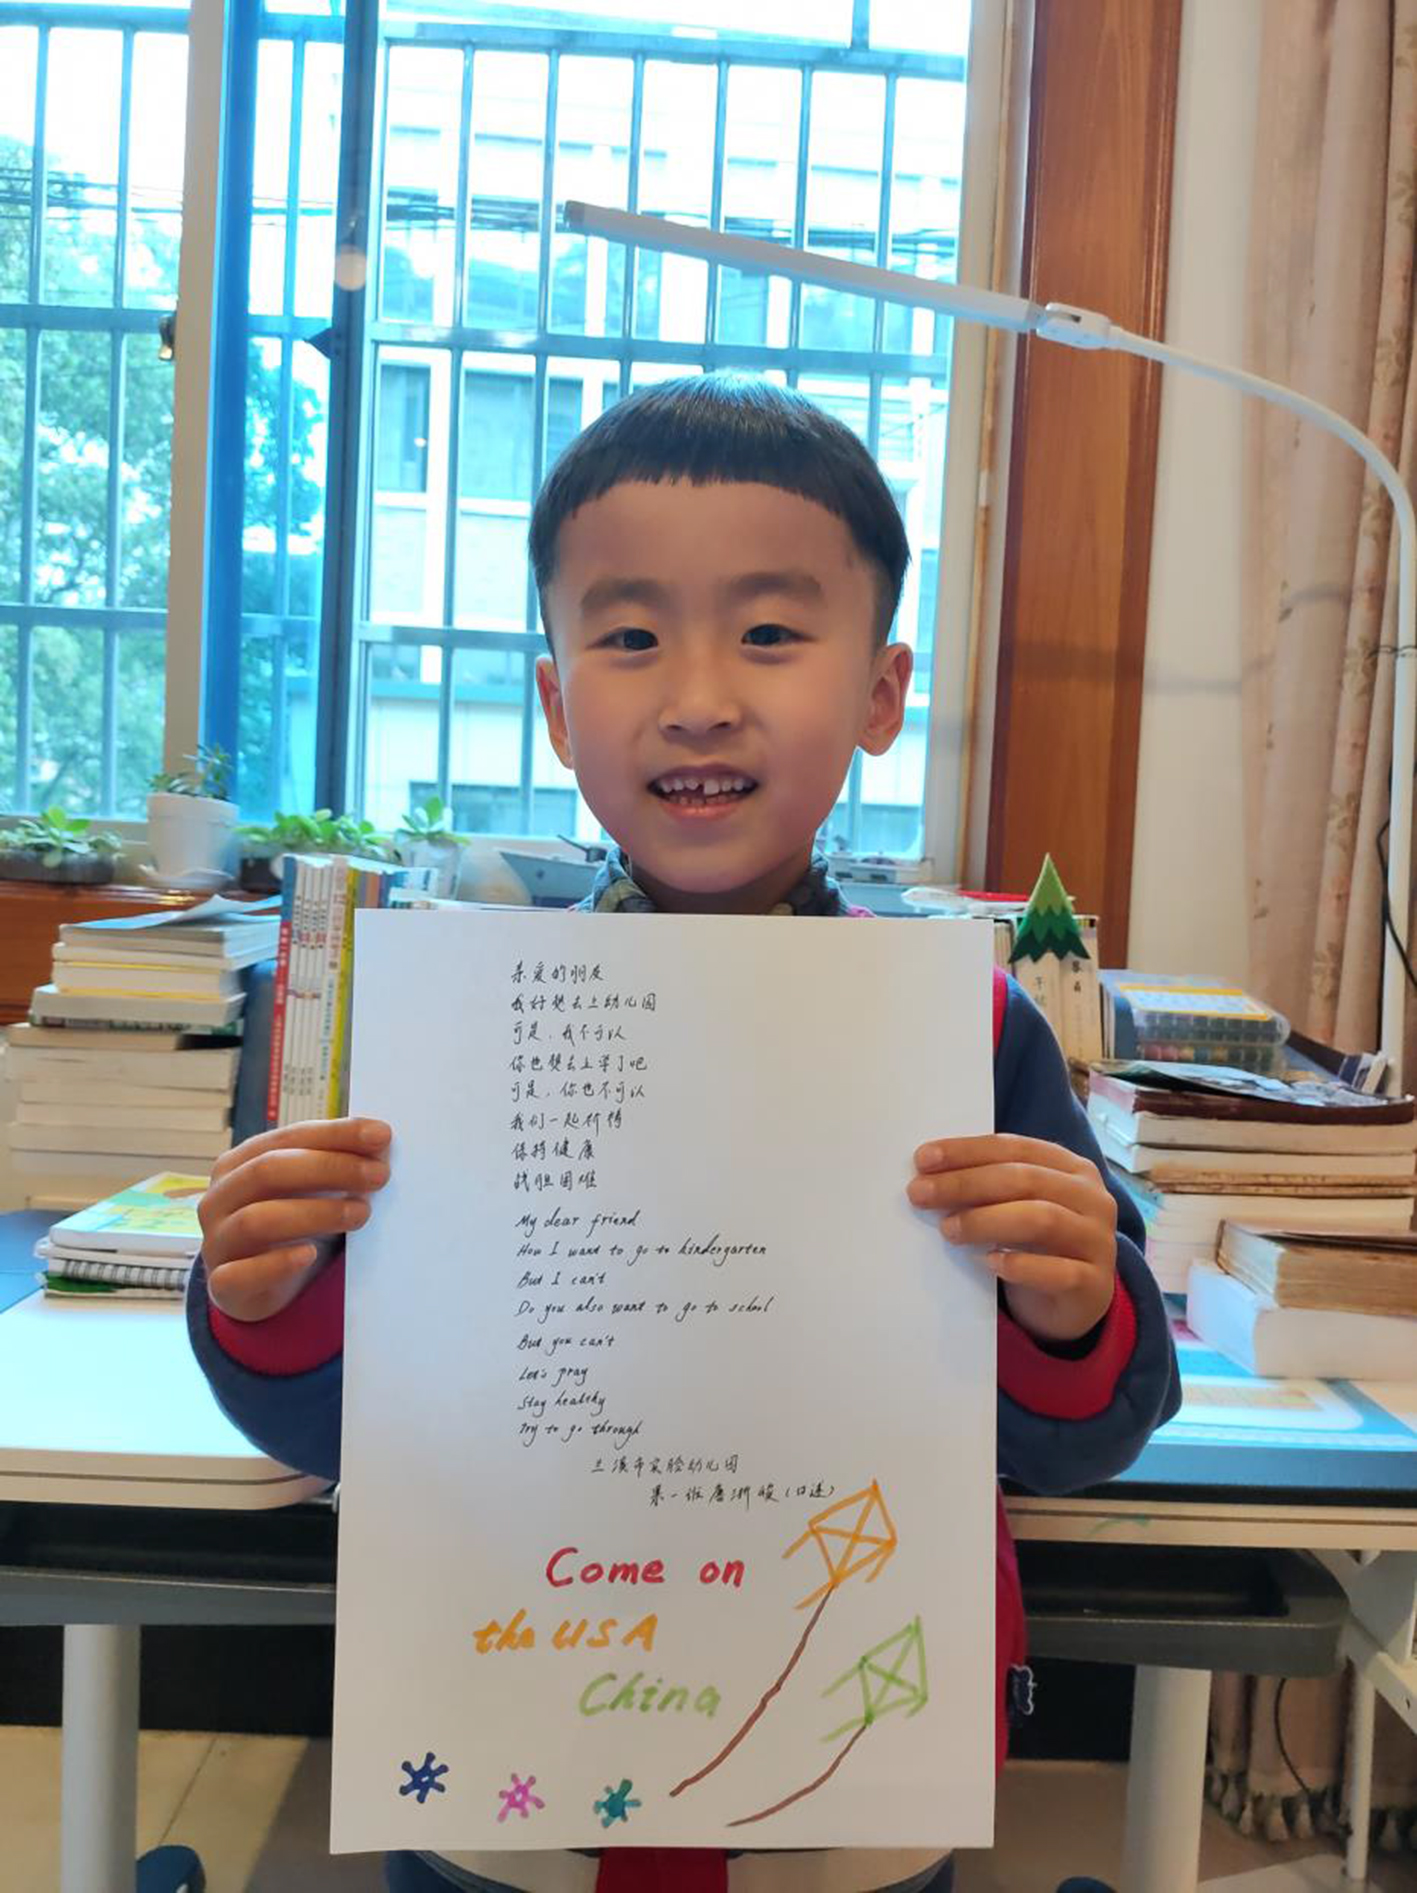 亲爱的朋友
我好想去上幼儿园
可是，我不可以
你也想去上学了吧
可是，你也不可以
我们一起祈祷
保持健康
战胜困难
My dear friend
How I want to go to kindergarten
But I can't
Do you also want to go to school
But you can't
Let's pray
Stay healthy
Try to go through
兰溪市实验幼儿园
果一班唐浙骏（口述）
Come on
the USA
China